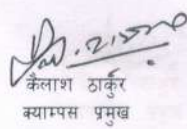 कैलाश ठाकुर
क्याम्पस प्रमुख